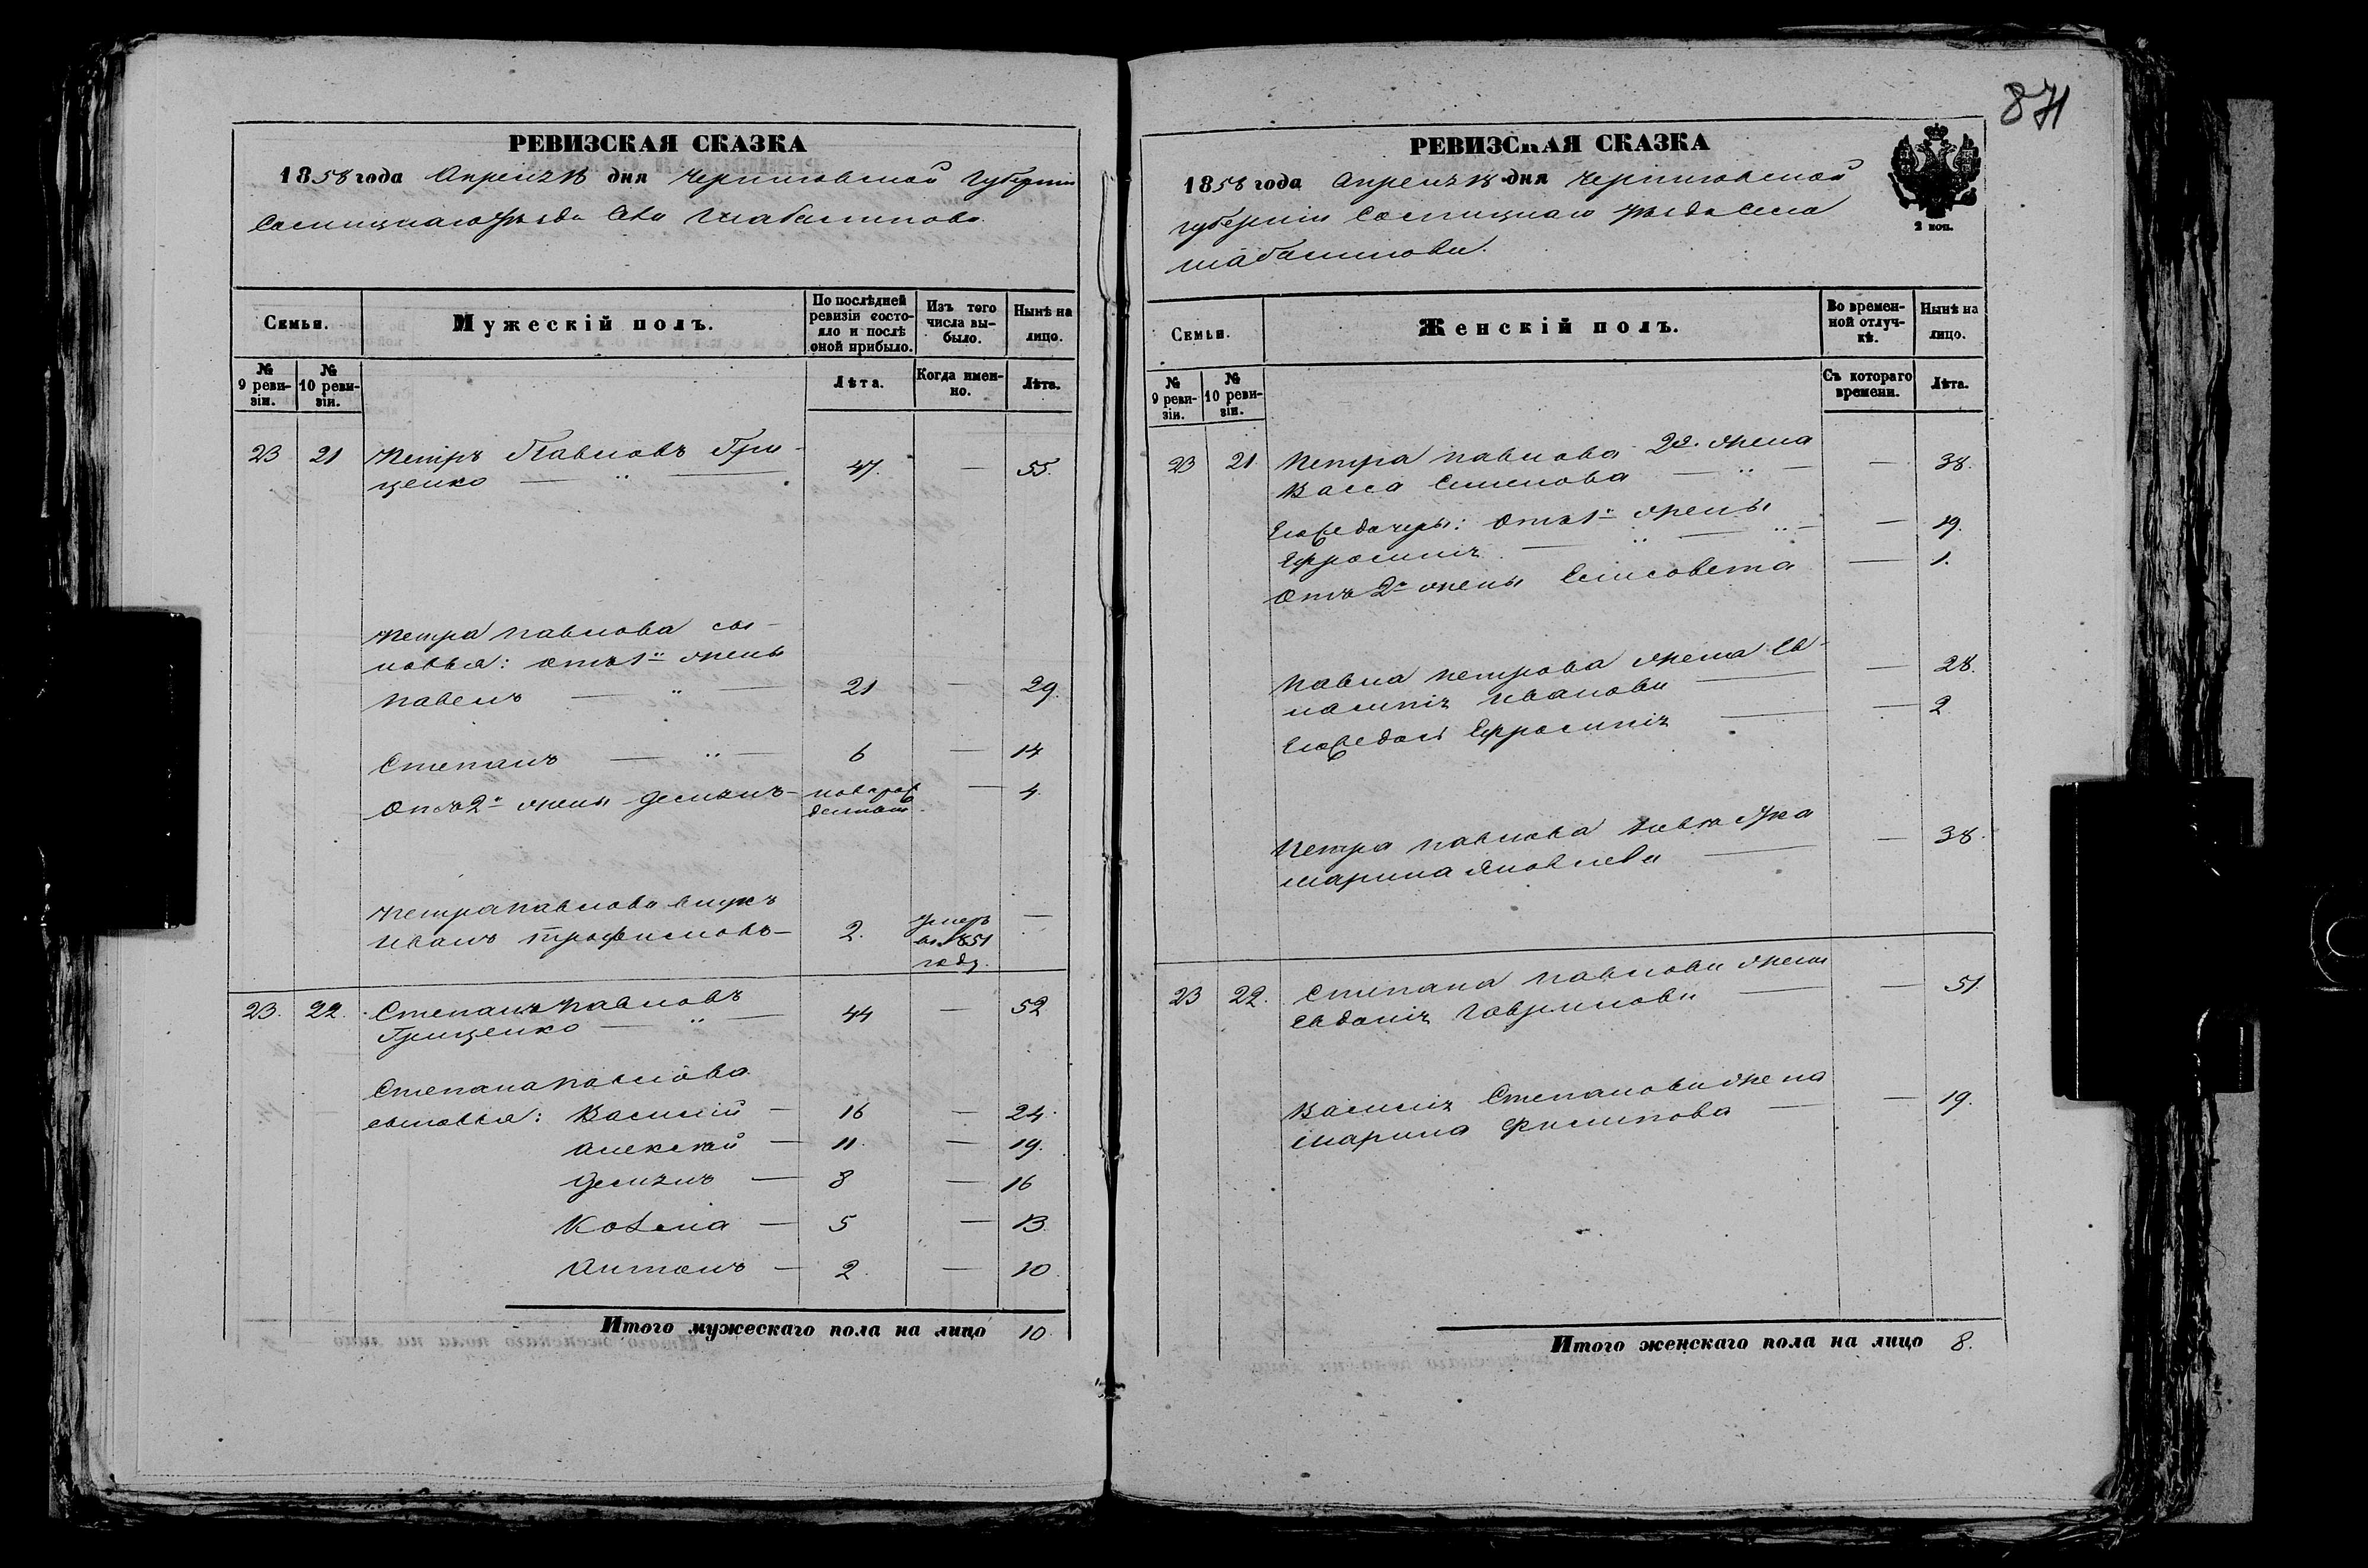 871
РЕВИЗСКАЯ СКАЗКА
1858 года Апреля 18 дня Черниговской Губерніи
Сосницкаго Уѣзда Села Шабалинова
Семьи. Мужескій полъ. По послѣдней ревизіи состояло и послѣ оной прибыло. Изъ того числа выбыло. Нынѣ на лицо.
№ 9 ревизіи. № 10 ревизіи. Лѣта. Когда именно. Лѣта.
23 21 Петръ Павловъ Гри-
ценко — " — 47. — 55.
Петра Павлова сы-
новья: отъ 1й жены
Павелъ — " — 21 — 29.
Степанъ — " — 6 — 14
Отъ 2й жены Демьянъ — новорож
денный — 4.
Петра Павлова внукъ
Иванъ Трофимовъ — 2. умеръ
въ 1851
году. —
23. 22. Степанъ Павловъ
Гриценко — " — 44 — 52
Степана Павлова
сыновья: Василій — 16 — 24.
Алексѣй — 11. — 19.
Демьянъ — 8 — 16
Козьма — 5 — 13.
Антонъ — 2. — 10.
Итого мужескаго пола на лицо 10.
РЕВИЗСКАЯ СКАЗКА
1858 года Апреля 18 дня Черниговской
губерніи Сосницкаго уѣзда Села
Шабалинова.
2 коп.
Семьи. Женскій полъ. Во временной отлучкѣ. Нынѣ на лицо.
№ 9 ревизіи. № 10 ревизіи. Съ котораго времени. Лѣта.
23 21. Петра Павлова 2я. жена
Васса Семенова — " — — 38.
Его же дочери: отъ 1й жены
Ефросинія — " — " — — 19.
Отъ 2й жены Елисовета — 1.
Павла Петрова жена Ев-
Иванова — — 28.
Его же дочь Ефросинія — — 2
Петра Павлова невѣстка
Марина Яковлева — — 38.
23 22. Степана Павлова жена
Евдокія Гаврилова — — 51.
Василія Степанова жена
Марина Филипова — — 19.
Итого женскаго пола на лицо 8.